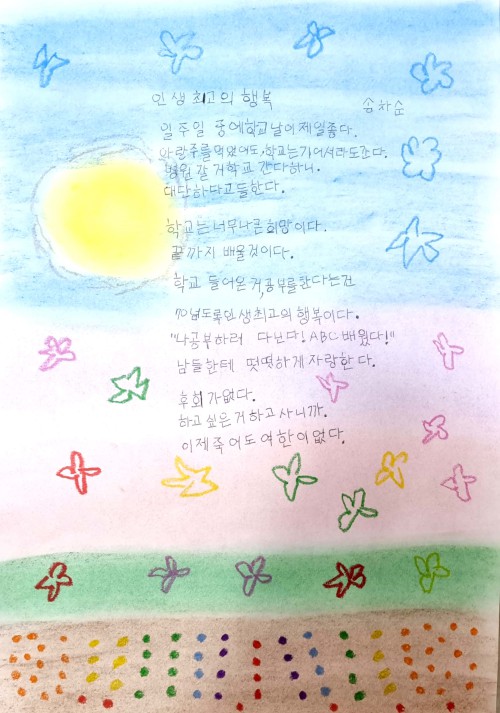 인생 최고의 행복
송차순
일주일 중에 학교 날이 제일 좋다.
사랑주를 먹었어도, 학교는 기어서라도 간다.
병원 갈 거 학교 간다하니.
대단하다고들한다.
학교는 너무나 큰 희망이다.
끝까지 배울것이다.
학교 들어온 거, 공부를 한다는건
70넘도록 인생최고의 행복이다.
"나공부하러 다닌다! ABC 배웠다!"
남들한테 떳떳하게 자랑한다.
후회가없다.
하고싶은거하고 사니까.
이제 죽어도 여한이 없다.